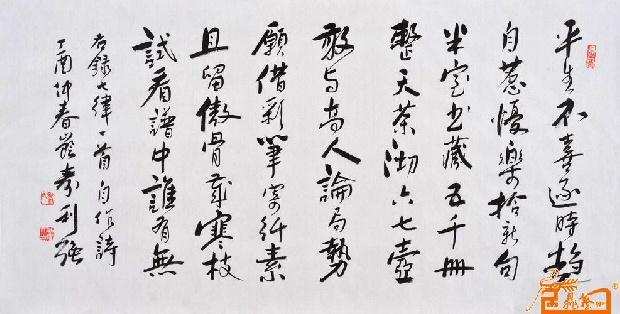 平生不喜逐時趨
自惹懮樂拾新句
米室书藏五千冊
整天茶沏六七壺
敢与高人論局勢
願借彩筆寄纤素
且留傲骨寒枝
試看譜中誰有無
右錄七律一首自作詩
丁酉仲春秦利强